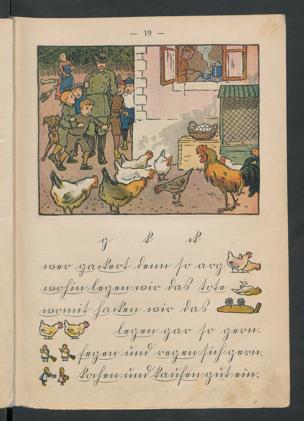 — 19 —
g k ck
wer gackert denn so arg
wohin legen wir das tote
womit hacken wir das
legen gar so gern.
fegen und regen sich gern.
kochen und kaufen gut ein.